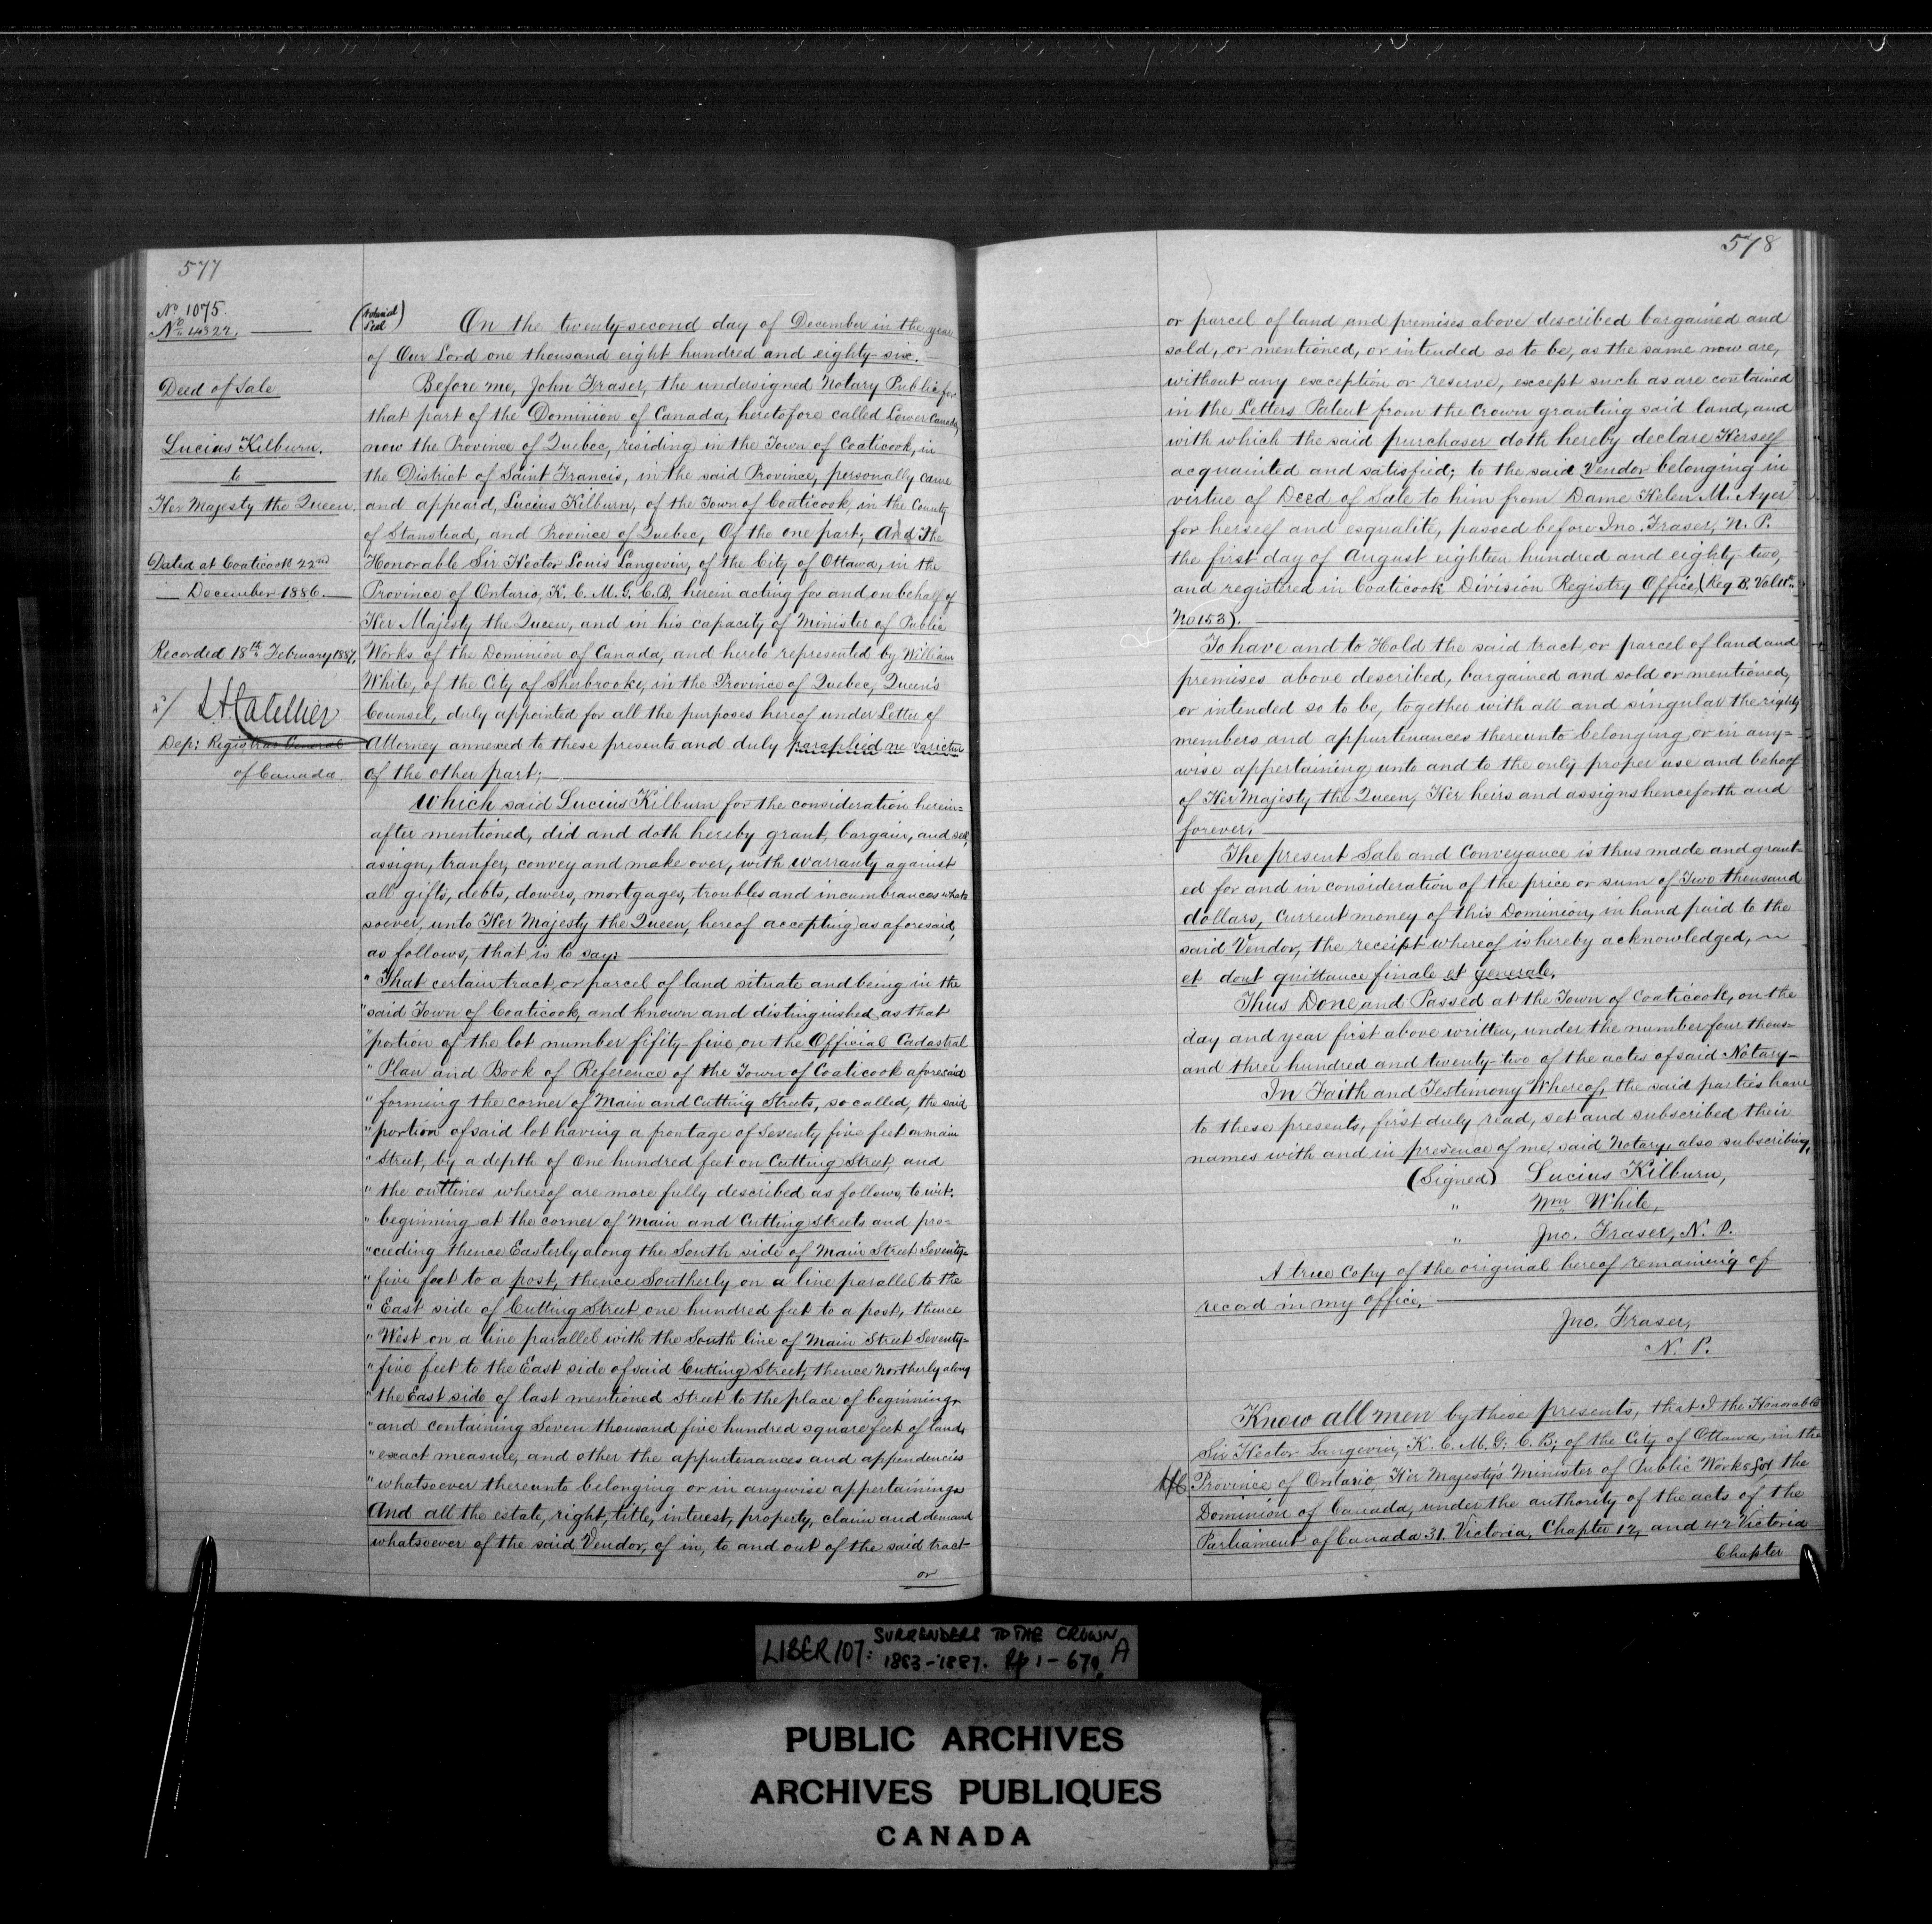 577
No 1075.
No 4322.
Deed of Sale
Lucius Kilburn.
to
Her Majesty the Queen.
Dated at Coaticook 22nd
December 1886.
Recorded 18th February 1887,
Dep: Registrar General
of Canada.
(Notarial
Seal)
On the twenty-second day of December in the year
of Our Lord one thousand eight hundred and eighty-six.
Before me, John Fraser, the undersigned Notary Public for
that part of the Dominion of Canada, heretofore called Lower Canada,
now the Province of Quebec, residing in the Town of Coaticook, in
the District of Saint Francis, in the said Province, personally came
and appeard, Lucius Kilburn, of the Town of Coaticook, in the County
of Stanstead, and Province of Quebec, Of the one part; And The
Honorable Sir Hector Louis Langevin, of the City of Ottawa, in the
Province of Ontario, K. C. M. G. C. B, herein acting for and on behalf of
Her Majesty the Queen, and in his capacity of Minister of Public
Works of the Dominion of Canada, and hereto represented by William
White, of the City of Sherbrooke, in the Province of Quebec, Queen's
Counsel, duly appointed for all the purposes hereof under Letter of
Attorney annexed to these presents and duly paraphed ne varietur
of the other part;
Which said Lucius Kilburn for the consideration herein=
after mentioned, did and doth hereby grant, bargain, and sell,
assign, tranfer, convey and make over, with warranty against
all gifts, debts, dowers, mortgages, troubles and incumbrances what=
soever, unto Her Majesty the Queen, hereof accepting as aforesaid,
as follows, that is to say:
" That certain tract or parcel of land situate and being in the
" said Town of Coaticook, and known and distinguished as that
" portion of the lot number fifity-five on the Official Cadastral
" Plan and Book of Reference of the Town of Coaticook aforesaid
" forming the corner of Main and Cutting Streets, so called, the said
" portion of said lot having a frontage of Seventy five feet on main
" Street, by a depth of One hundred feet on Cutting Street, and
" the outtlines whereof are more fully described as follows, to wit:
" beginning at the corner of Main and Cutting Streets and pro=
" ceeding thence Easterly along the South side of Main Street Seventy=
" five feet to a post, thence Southerly on a line parallel to the
" East side of Cutting Street one hundred feet to a post, thence
" West on a line parallel with the South line of Main Street Seventy=
" five feet to the East side of said Cutting Street, thence Northerly along
" the East side of last mentioned Street to the place of beginning,
" and containing Seven thousand five hundred square feet of land,
" exact measure, and other the appurtenances and appendencies
" whatsoever thereunto belonging or in anywise appertaining.
And all the estate, right, title, interest, property, claim and demand
whatsoever of the said Vendor, of in, to and out of the said tract
or
578
or parcel of land and premises above described bargained and
sold, or mentioned, or intended so to be, as the same now are,
without any exception or reserve, except such as are contained
in the Letters Patent from the Crown granting said land, and
with which the said purchaser doth hereby declare Herself
acquainted and satisfied; to the said Vendor belonging in
virtue of Deed of Sale to him from Dame Helen M. Ayer
for herself and esqualité, passed before Jno. Fraser, N. P.
the first day of August eighteen hundred and eighty-two,
and registered in Coaticook Division Registry Office, (Reg B. Vol
No 153).
To have and to Hold the said tract or parcel of land and
premises above described, bargained and sold or mentioned,
or intended so to be, together with all and singular the rights
members and appurtenances thereunto belonging or in any=
wise appertaining unto and to the only proper use and behoof
of Her Majesty the Queen, Her heirs and assigns henceforth and
forever.
The present Sale and Conveyance is thus made and grant=
ed for and in consideration of the price or sum of Two thousand
dollars, current money of this Dominion, in hand paid to the
said Vendor, the receipt whereof is hereby acknowledged,
et dout quittance finale et generale.
Thus Done and Passed at the Town of Coaticook, on the
day and year first above written, under the number four thous=
and three hundred and twenty-two of the actes of said Notary
In Faith and Testimony Whereof, the said parties have
to these presents, first duly read, set and subscribed their
names with and in presence of me, said Notary, also subscribing.
(Signed) Lucius Kilburn,
" Wm White,
" Jno. Fraser, N. P.
A true Copy of the original hereof remaining of
record in my office.
Jno. Fraser,
N. P.
Know all men by these presents, that I the Honorable
Sir Hector Langevin, K. C. M. G; C. B; of the City of Ottawa, in the
Province of Ontario, Her Majesty's Minister of Public Works for the
Dominion of Canada, under the authority of the acts of the
Parliament of Canada 31. Victoria, Chapter 12, and 42 Victoria
Chapter
LIBER 107: SURRENDERS TO THE CROWN A
1883-1887. Pp 1-670
PUBLIC ARCHIVES
ARCHIVES PUBLIQUES
CANADA